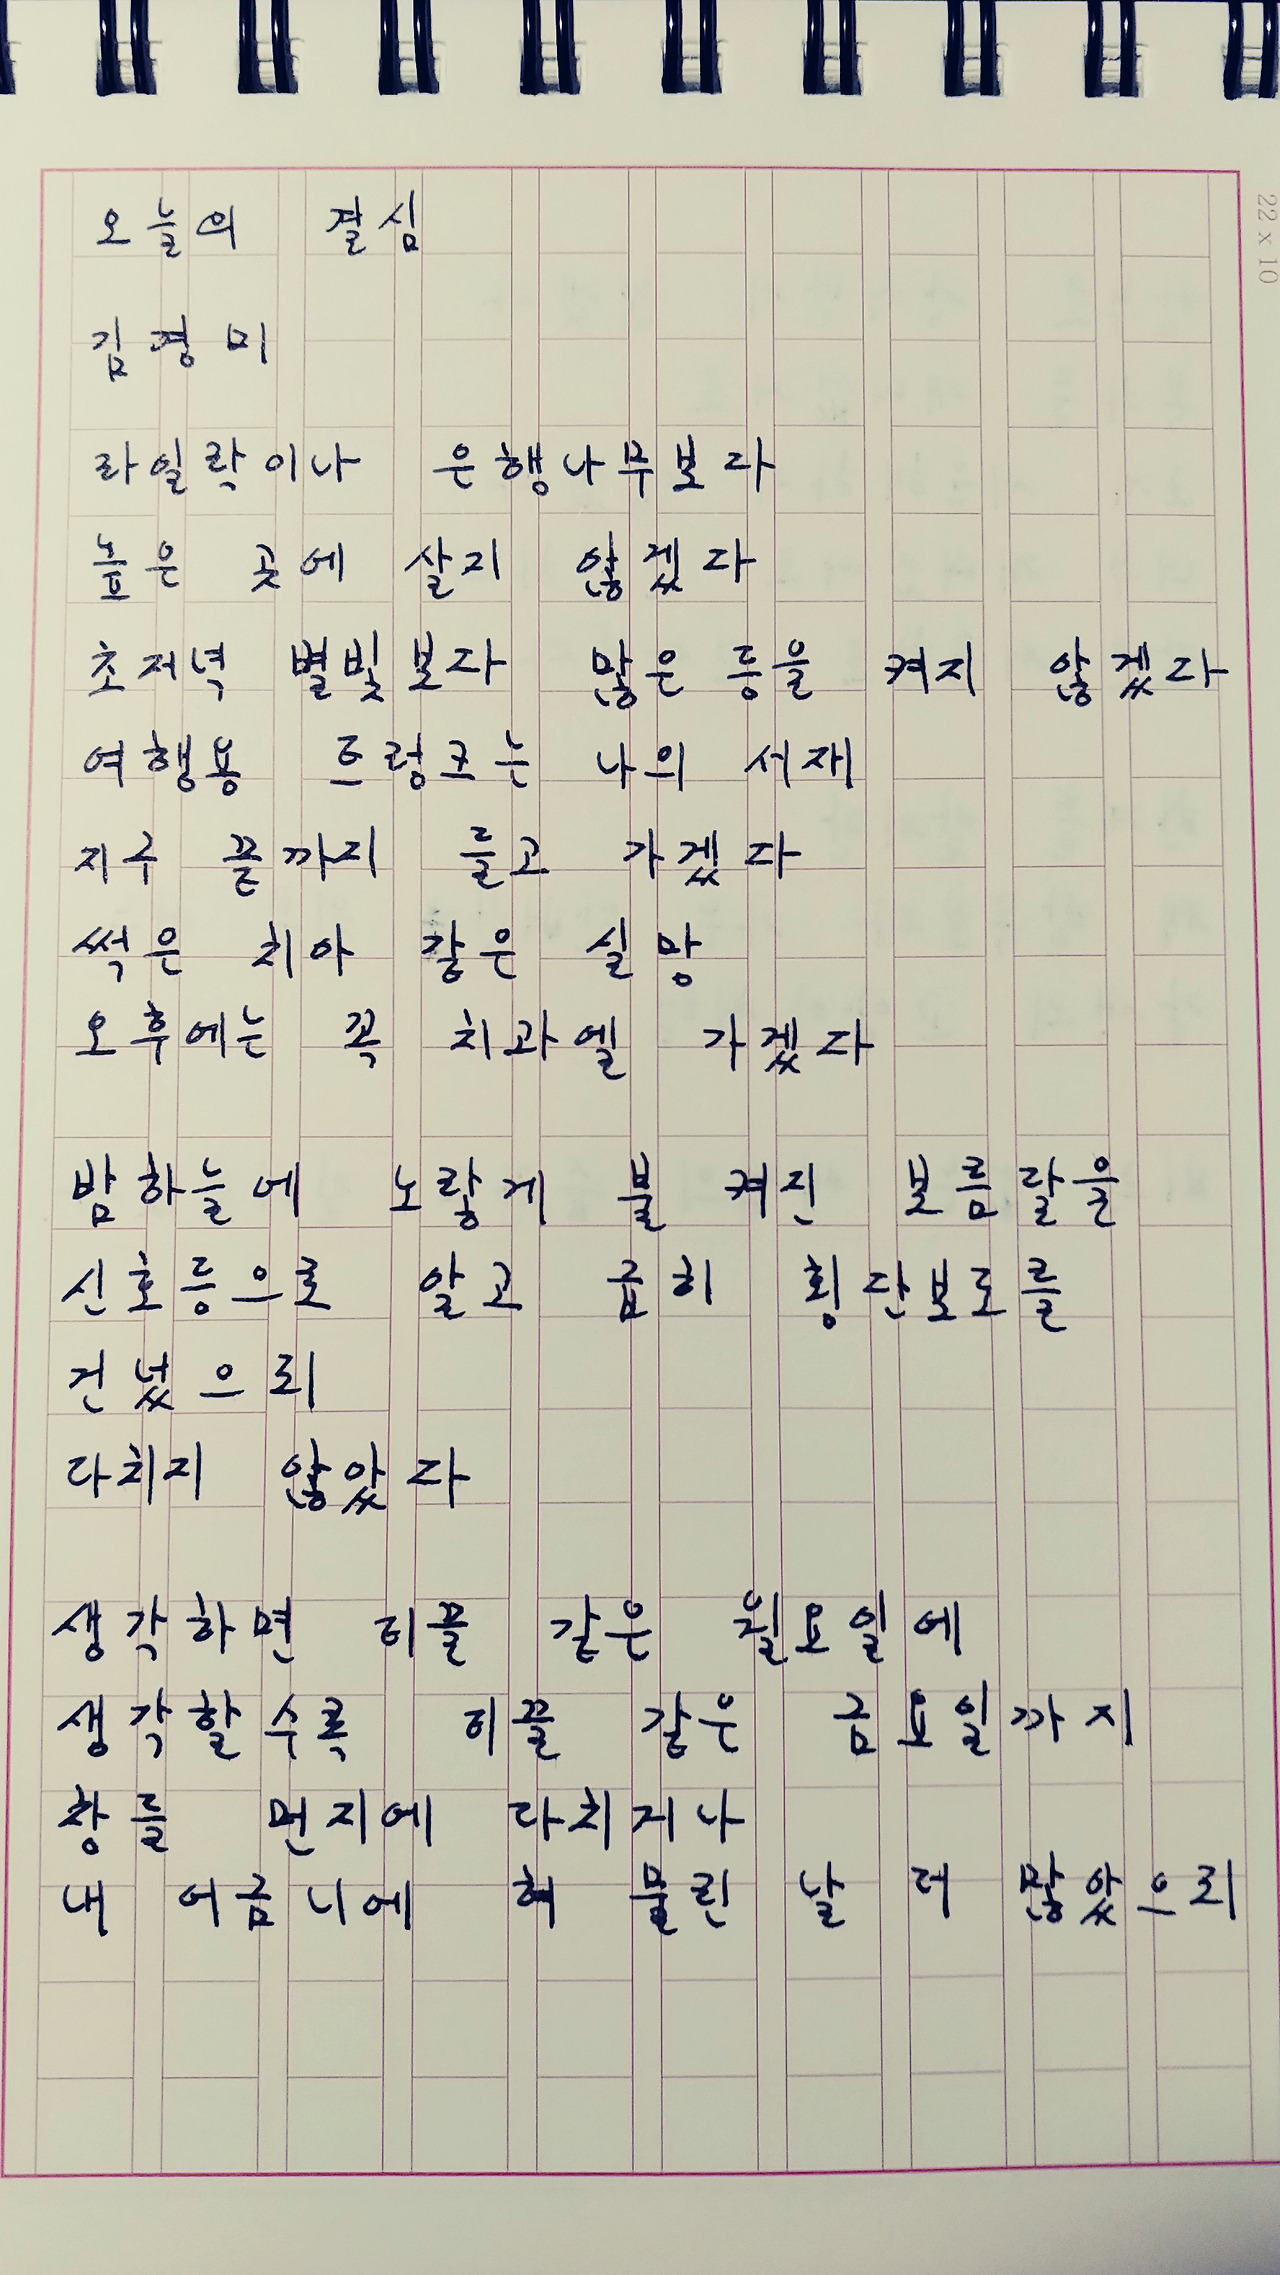 22 x 10
오늘의 결심
김경미
라일락이나 은행나무보다
높은 곳에 살지 않겠다
초저녁 별빛보다 많은 등을 켜지 않겠다
여행용 트렁크는 나의 서재
지구 끝까지 들고 가겠다
썩은 치아 같은 실망
오후에는 꼭 치과엘 가겠다
밤하늘에 노랗게 불 켜진 보름달을
신호등으로 알고 급히 횡단보도를
건넜으되
다치지 않았다
생각하면 티끌 같은 월요일에
생각할수록 티끌 같은 금요일까지
창틀 먼지에 다치거나
내 어금니에 혀 물린 날 더 많았으되